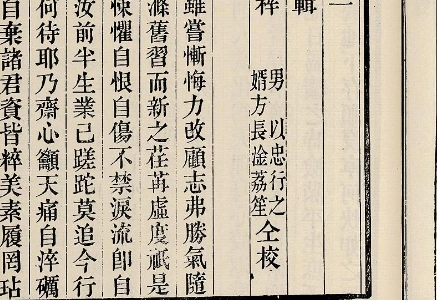 輯
梓
男以忠行之
婿方長淦荔笙
仝校
雖嘗慚悔力改顧志弗勝氣隨
滌舊習而新之荏苒虛度祗是
悚懼自恨自傷不禁淚流卽自
汝前半生業已蹉跎莫追今行
何待耶乃齋心籲天痛自淬礪
自棄諸君資皆粹美素履罔玷